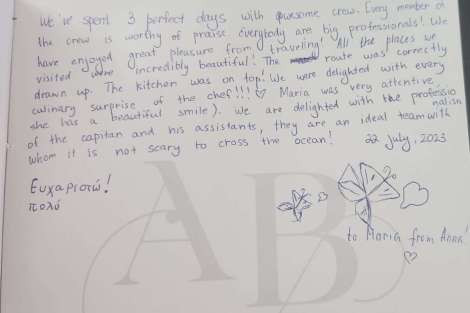 We've spent 3 perfect days with awesome crew. Every member of
the crew is worthy of praise. Everybody are big professionals! We
have enjoyed great pleasure from traveling! All the places we
visited were incredibly beautiful! The route was correctly
drawn up. The kitchen was on top! We were delighted with every
culinary surprise of the chef!!! ♡ Maria was very attentive,
she has a beautiful smile). We are delighted with the professio
nalism
of the capitan and his assistants, they are an ideal team with
whom it is not scary to cross the ocean! 22 July, 2023
Ευχαριστώ!
πολύ
to Maria from Anna!
AB